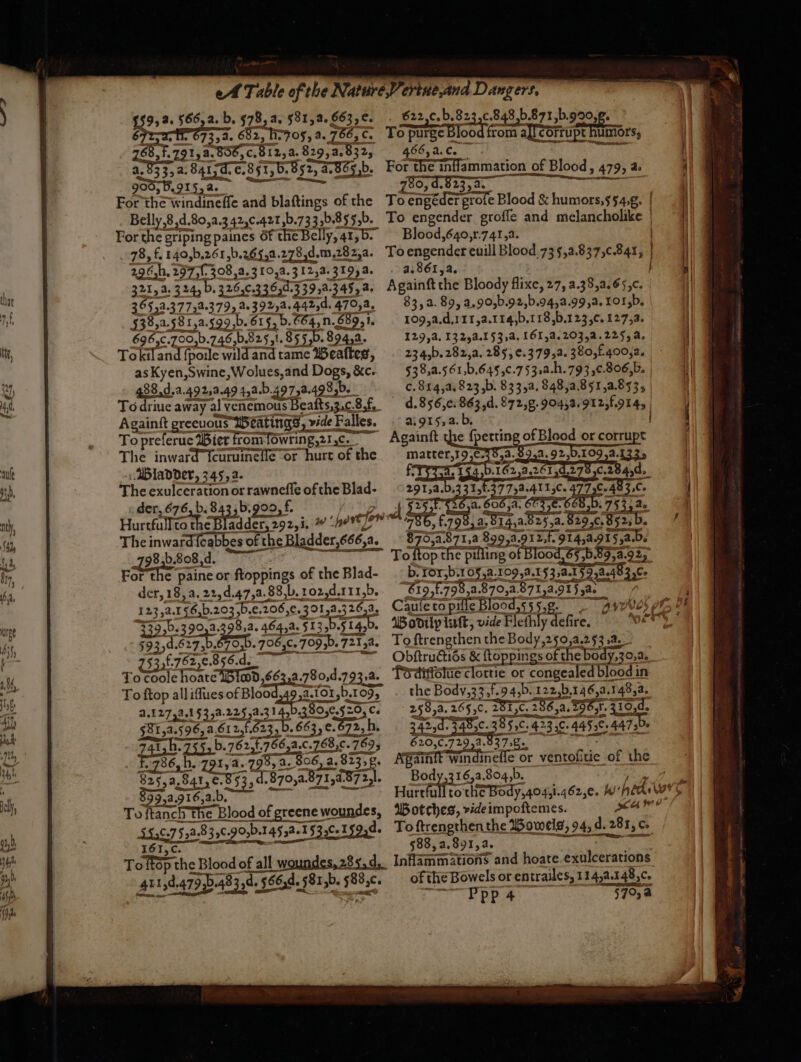 A Table of the Nature, Vertue, and Dangers,
559,a. 566,a.b. 578,a. 581,a. 663,e.
673,a. 682,h.705,a. 766,c.
768,f.791,a.806,c.812,a. 829,a.832,
a.833,a.841,d.e.851,b.852,a.865,b.
900,b.915,a.
For the windinesse and blastings of the
Belly,8,d.80,a.342,c.421,b.733,b.855,b.
For the griping paines of the Belly, 41,b.
78,f.140,b.261,b.265,a.278,d.m.282,a.
296,h.297,f.308,a.310,a.312,a.319,a.
321,a.324,b.326,c.336,d.339,a.345,a.
365,a.377,a.379,a.392,a.442,d.470,a.
538,a.581,a.599,b.615,b.664,n.689,i.
696,c.700,b.746,b.825,i.855,b.894,a.
To kil and spoile wild and tame Beastes,
as Kyen,Swine,Wolues,and Dogs, &c.
488,d,a.492,a.494,a.b.497,a.498,b.
To driue away al venemous Beasts,3,c.8,f.
Against greeuous Beatings, vide Falles.
To preserue Bier from sowring,21,c.
The inward scuruinesse or hurt of the
Bladder, 345,a.
The exulceration or rawnesse of the Blad-
der,676,b.843,b.900,f.
Hurtfull to the Bladder,292,i.
The inward scabbes of the Bladder,666,a.
798,b.808,d.
For the paine or stoppings of the Blad-
der,18,a.22,d.47,a.88,b.102,d.111,b.
123,a.156,b.203,b.e.206,e.301,a.326,a.
339,b.390,a.398,a.464,a.513,b.514,b.
593,d.627,b.670,b.706,c.709,b.721,a.
753,f.762,e.856,d.
To coole hoate Blood,663,a.780,d.793,a.
To stop all issues of Blood,49,a.101,b.109,
a.127,a.153,a.225,a.314,b.380,e.520,c.
581,a.596,a.612,f.623,b.663,e.672,h.
741,h.755,b.762,f.766,a.c.768,c.769,
f.786,h.791,a.798,a.806,a.823,g.
825,a.841,e.853,d.870,a.871,a.872,l.
899,a.916,a.b.
To stanch the Blood of greene woundes,
55,c.75,a.83,c.90,b.145,a.153,c.159,d.
161,c.
To stop the Blood of all woundes,285,d.
411,d.479,b.483,d.566,d.581,b.588,c.
622,c.b.823,c.848,b.871,b.900,g.
To purge Blood from all corrupt humors,
466,a.c.
For the inflammation of Blood, 479, a.
780,d.823,a.
To engēder grose Blood & humors,554,g.
To engender grosse and melancholike
Blood,640,r.741,a.
To engender euill Blood 735,a.837,c.841,
a.861,a.
Against the Bloody flixe, 27,a.38,a.65,c.
83,a.89,a.90,b.92,b.94,a.99,a.101,b.
109,a.d,111,a.114,b.118,b.123,c.127,a.
129,a.132,a.153,a.161,a.203,a.225,a.
234,b.282,a.285,e.379,a.380,f.400,a.
538,a.561,b.645,c.753,a.h.793,c.806,b.
c.814,a.823,b.833,a.848,a.851,a.853,
d.856,c.863,d.872,g.904,a.912,f.914,
a.915,a.b.
Against the spetting of Blood or corrupt
matter,19,c.38,a.89,a.92,b.109,a.133,
f.153,a.154,b.162,a.261,d.278,c.284,d.
291,a.b.331,f.377,a.411,c.477,c.483,c.
525,f.526,a.606,a.673,e.668,b.753,a.
786,f.798,a.814,a.825,a.829,c.852,b.
870,a.871,a.899,a.912,f.914,a.915,a.b.
To stop the pissing of Blood,65,b.89,a.92,
b.101,b.105,a.109,a.153,a.159,a.483,c.
619,f.798,a.870,a.871,a.915,a.
Cause to pisse Blood,555,g.
Bodily lust, vide Fleshly desire.
To strengthen the Body,250,a.253,a.
Obstructiōs & stoppings of the body,30,a.
To dissolue clottie or congealed blood in
the Body,33,f.94,b.122,b,146,a.148,a.
258,a.265,c,281,c.286,a.296,r.310,d.
342,d.348,c.385,c.423,c.445,c.447,b.
620,c.729,a.837,g.
Against windinesse or ventositie of the
Body,316,a.804,b.
Hurtfull to the Body,404,i.462,e.
Botches, vide impostemes.
To strengthen the Bowels, 94, d. 281, c.
588,a.891,a.
Inflammations and hoate exulcerations
of the Bowels or entrailes,114,a.148,c.
Ppp 4
570,a